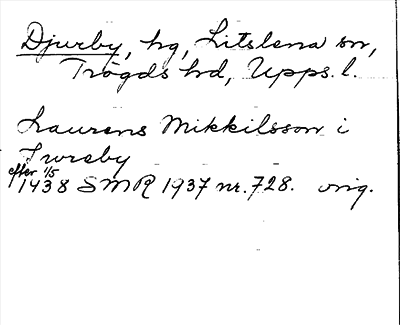 Djurby, hg, Litslena sn,
Trögds hd, Upps. l.
Laurens Mikkilsson i
Jwrsby
efter 1/5
1438 SMR 1937 nr. 728. orig.